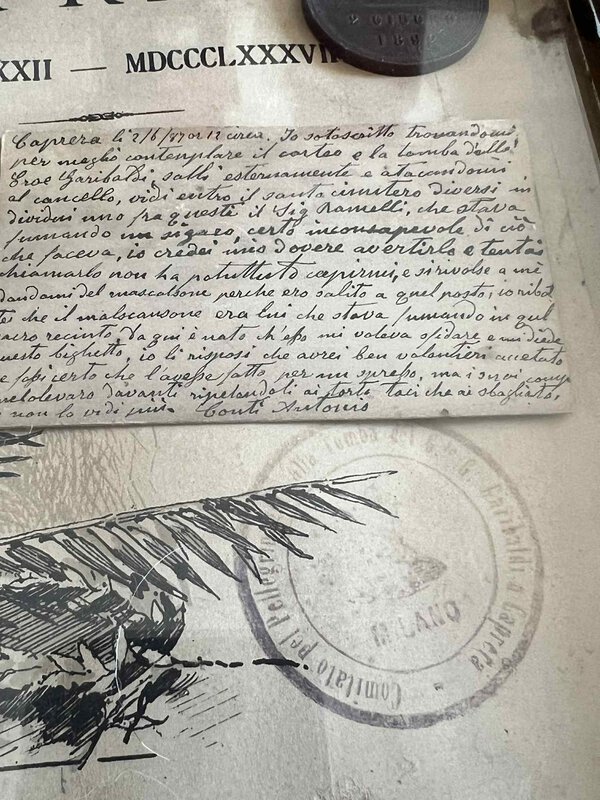 2 GIUGNO
XXII — MDCCCLXXXVII
Caprera li 2/6/87 or 12 circa. Io sotoscritto trovandomi
per meglio contemplare il corteo e la tomba dello
Eroe Garibaldi, salli esternamente e atacandomi
al cancello, vidi entro il santo cimitero diversi in
dividui uno fra questi il Sig Ramelli, che stava
fumando un sigaro certo inconsapevole di ciò
che faceva, io credei mio dovere avertirlo e tentai
chiamarlo non ha
e si rivolse a me
dandomi del mascalsone perche ero salito a quel posto; io ribat
tei che il malscansone era lui che stava fumando in quel
sacro recinto da qui è nato ch'esso mi voleva sfidare e mi diede
questo biglietto, io li risposi che avrei ben volantieri accetato
certo che l'avesse fatto per un
ma i
davanti
ai
non lo vidi più. Conti Antonio
Comitato pel Pellegri
alla Tomba di
G. Garibaldi a Caprera
MILANO